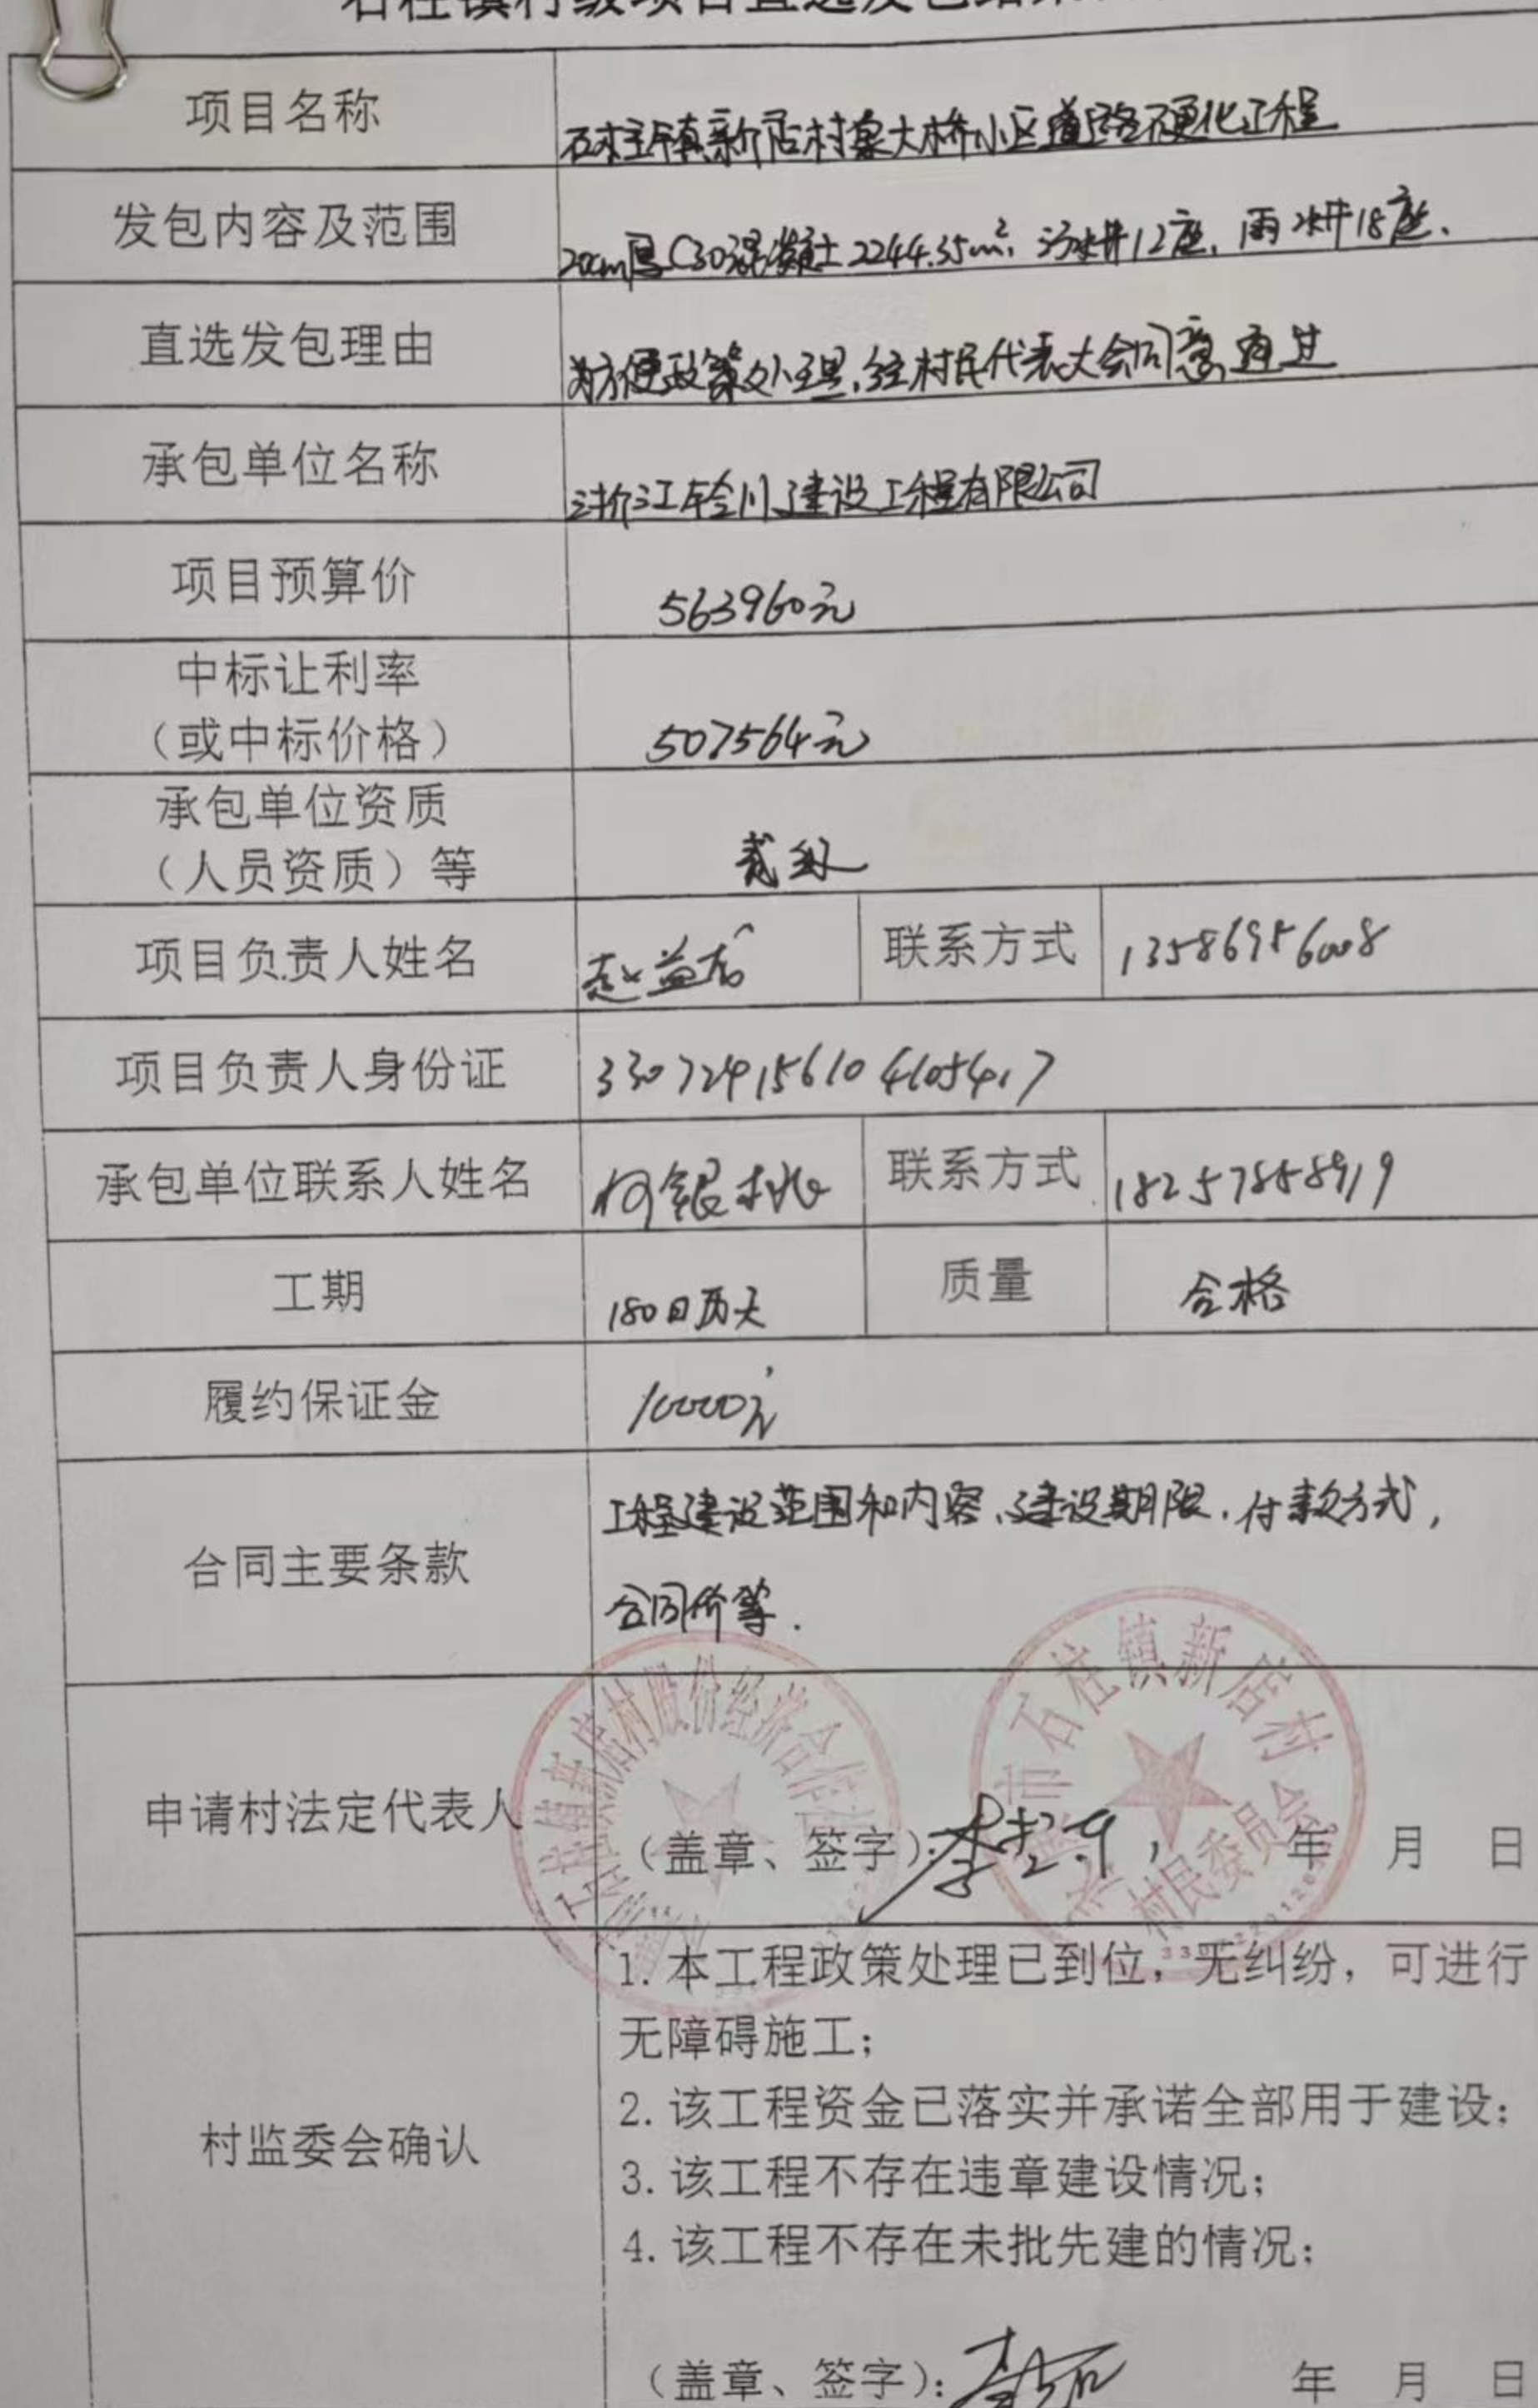 石柱镇村级项目直选发包结果
项目名称 石柱镇新店村章大桥小区道路硬化工程
发包内容及范围 20cm厚C30混凝土2244.35m²,污水井12座,雨水井18座.
直选发包理由 为方便政策处理,经村民代表大会同意通过
承包单位名称 浙江 川建设工程有限公司
项目预算价 563960元
中标让利率
（或中标价格） 507564元
承包单位资质
（人员资质）等 贰级
项目负责人姓名 赵益 联系方式 13586956008
项目负责人身份证
承包单位联系人姓名 何银桃 联系方式 18257858919
工期 180日历天 质量 合格
履约保证金 10000元
合同主要条款 工程建设范围和内容、建设期限,付款方式,
合同价等.
石柱镇新店村股份经济合作社
市石柱镇新店村
村民委员会
申请村法定代表人 （盖章、签字）： 年 月 日
村监委会确认 1. 本工程政策处理已到位，无纠纷，可进行
无障碍施工；
2. 该工程资金已落实并承诺全部用于建设；
3. 该工程不存在违章建设情况；
4. 该工程不存在未批先建的情况；
（盖章、签字）： 年 月 日